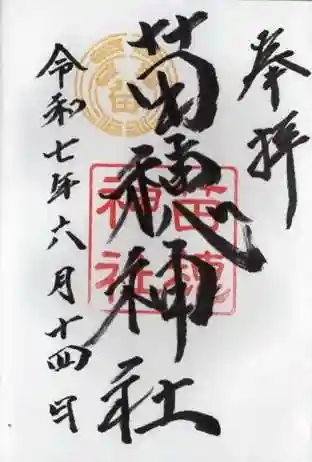 奉拝
苗穂神社
令和七年六月十四日
苗穂
神社
苗